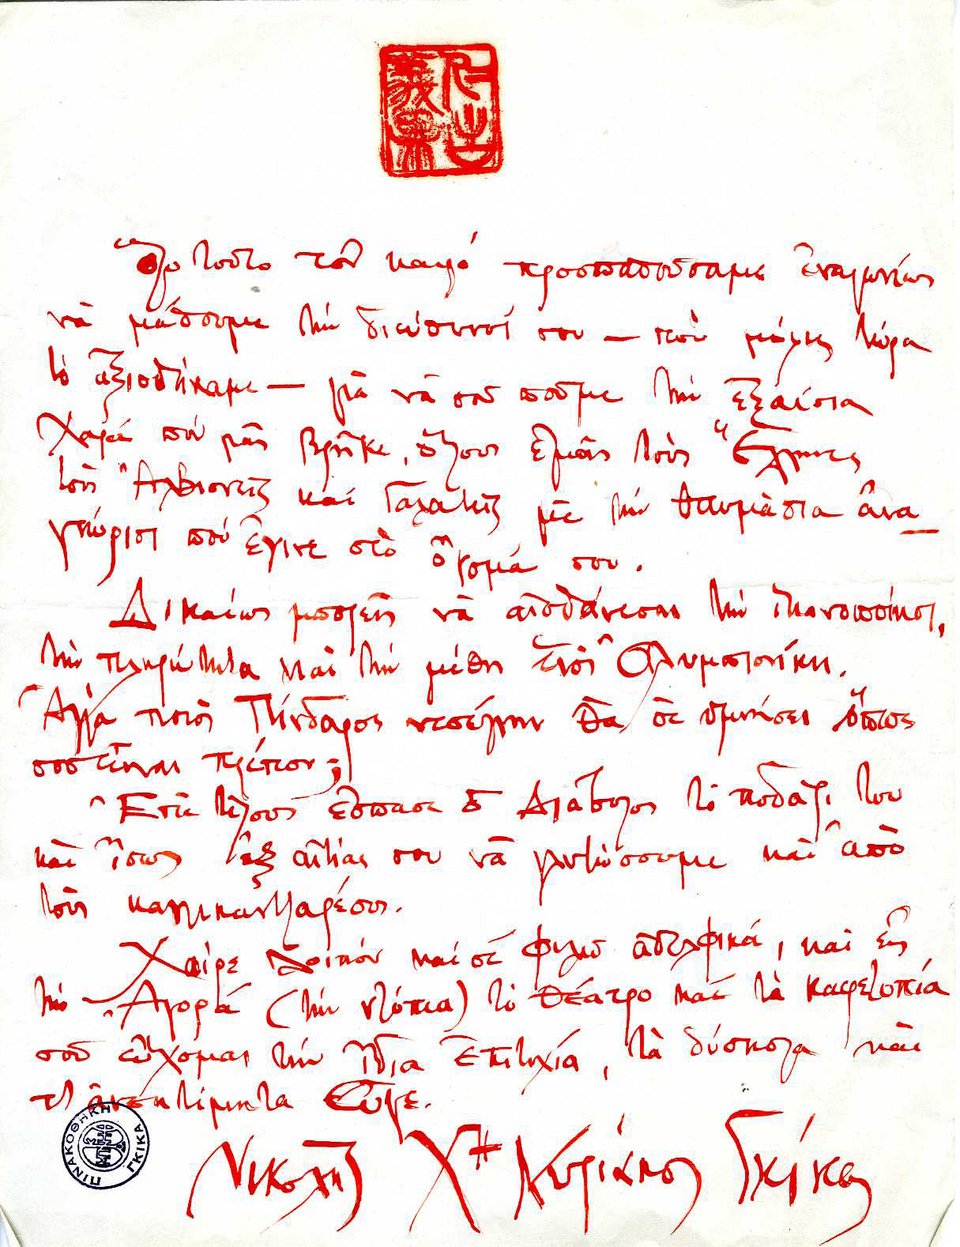 Ὅλο τοῦτο τὸν καιρό προσπαθούσαμε ἐναγωνίως
νὰ μάθουμε τὴν διεύθυνσί σου — ποὺ μόλις τώρα
τὸ ἀξιωθήκαμε — γιὰ νὰ σοῦ ποῦμε τὴν ἐξαίσια
χαρά πού μᾶς βρῆκε, ὅλους ἐμᾶς τοὺς Ἕλληνες
τοὺς Ἀλβιονεῖς καὶ Γαλάτες μὲ τὴν θαυμάσια ἀνα-
γνώρισι πού ἔγινε στὸ ὄνομά σου.
Δικαίως μπορεῖς νὰ αἰσθάνεσαι τὴν ἱκανοποίησι,
τὴν πληρότητα καὶ τὴν μέθη ἑνὸς Ὀλυμπιονίκη.
Ἀλλὰ ποιὸς Πίνδαρος νεοέλλην θὰ σὲ ὑμνήσει ὅπως
σοῦ εἶναι πρέπον;
Ἐπὶ τέλους ἔσπασε ὁ Διάβολος τὸ ποδάρι του
καὶ ἴσως ἐξ αἰτίας σου νὰ γλυτώσουμε καὶ ἀπὸ
τοὺς καλλικαντζαρέους.
Χαῖρε λοιπόν καὶ σὲ φιλῶ ἀδελφικά, καὶ εἰς
τὴν Ἀγορά (τὴν ντόπια) τὸ θέατρο καὶ τὰ καφετοπιά
σοῦ εὔχομαι τὴν ἴδια ἐπιτυχία, τὰ δύσκολα καὶ
τὰ ἀνεκτίμητα Εὖγε.
Νικολῆς Χ"Κυριάκος Γκίκας
ΠΙΝΑΚΟΘΗΚΗ ΓΚΙΚΑ